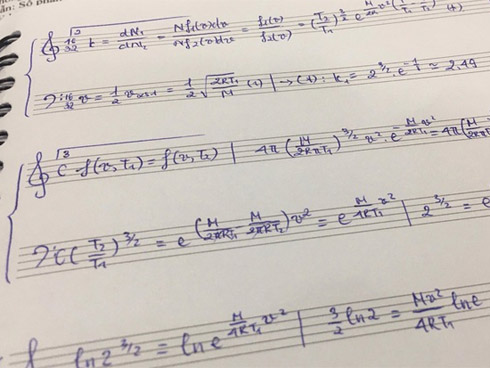 ần: Số phần
√2 16/32 k = dN₁/dN₂ = Nf₁(v)dv/Nf₂(v)dv = f₁(v)/f₂(v) = (T₂/T₁)^(3/2) e
16/32 v = 1/2 = 1/2 √(2RT₁/M) (1) | → (1): k₁ = 2^(3/2) . e^(-1/4) ≈ 2.44
√3 C f(v,T₁) = f(v,T₂) | 4π(M/2RπT₁)^(3/2) v² . e^(M/2RT₁ v²) = 4π(M/
(T₂/T₁)^(3/2) = e^(M/2RT₁ M/2RT₂)v² = e^(M/4RT₁ v²) | 2^(3/2) = e
ln 2^(3/2) = ln e^(M/4RT₁ v²) | 3/2 ln2 = Mv²/4RT₁ ln e